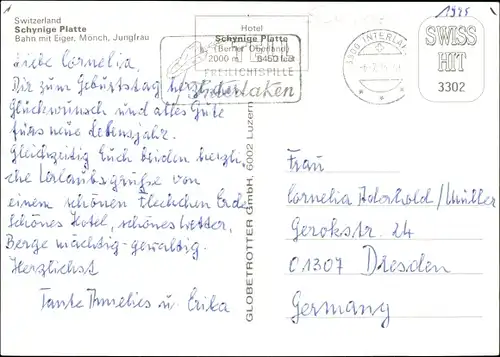 Switzerland
Schynige Platte
Bahn mit Eiger, Mönch, Jungfrau
Hotel
Schynige Platte
(Berner Oberland)
2000 m
FREILICHTSPIELE
Interlaken
3800 INTERLAKEN
1995
SWISS
HIT
3302
Liebe Cornelia,
Dir zum Geburtstag herzlichen
Glückwunsch und alles Gute
fürs neue Lebensjahr.
Gleichzeitig Euch beiden herzli-
che Urlaubsgrüße von
einem schönen Fleckchen Erde
Schönes Hotel, schönes Wetter,
Berge mächtig-gewaltig.
Herzlichst
Tante Annelies u. Erika
GLOBETROTTER GmbH, 6002 Luzern
Frau
Cornelia Aderhold/Müller
Gerokstr. 24
01307 Dresden
Germany